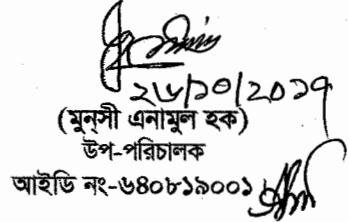 ২৬/১০/২০১৭
(মুন্সী এনামুল হক)
উপ-পরিচালক
আইডি নং-৬৪০৮১৯০০১